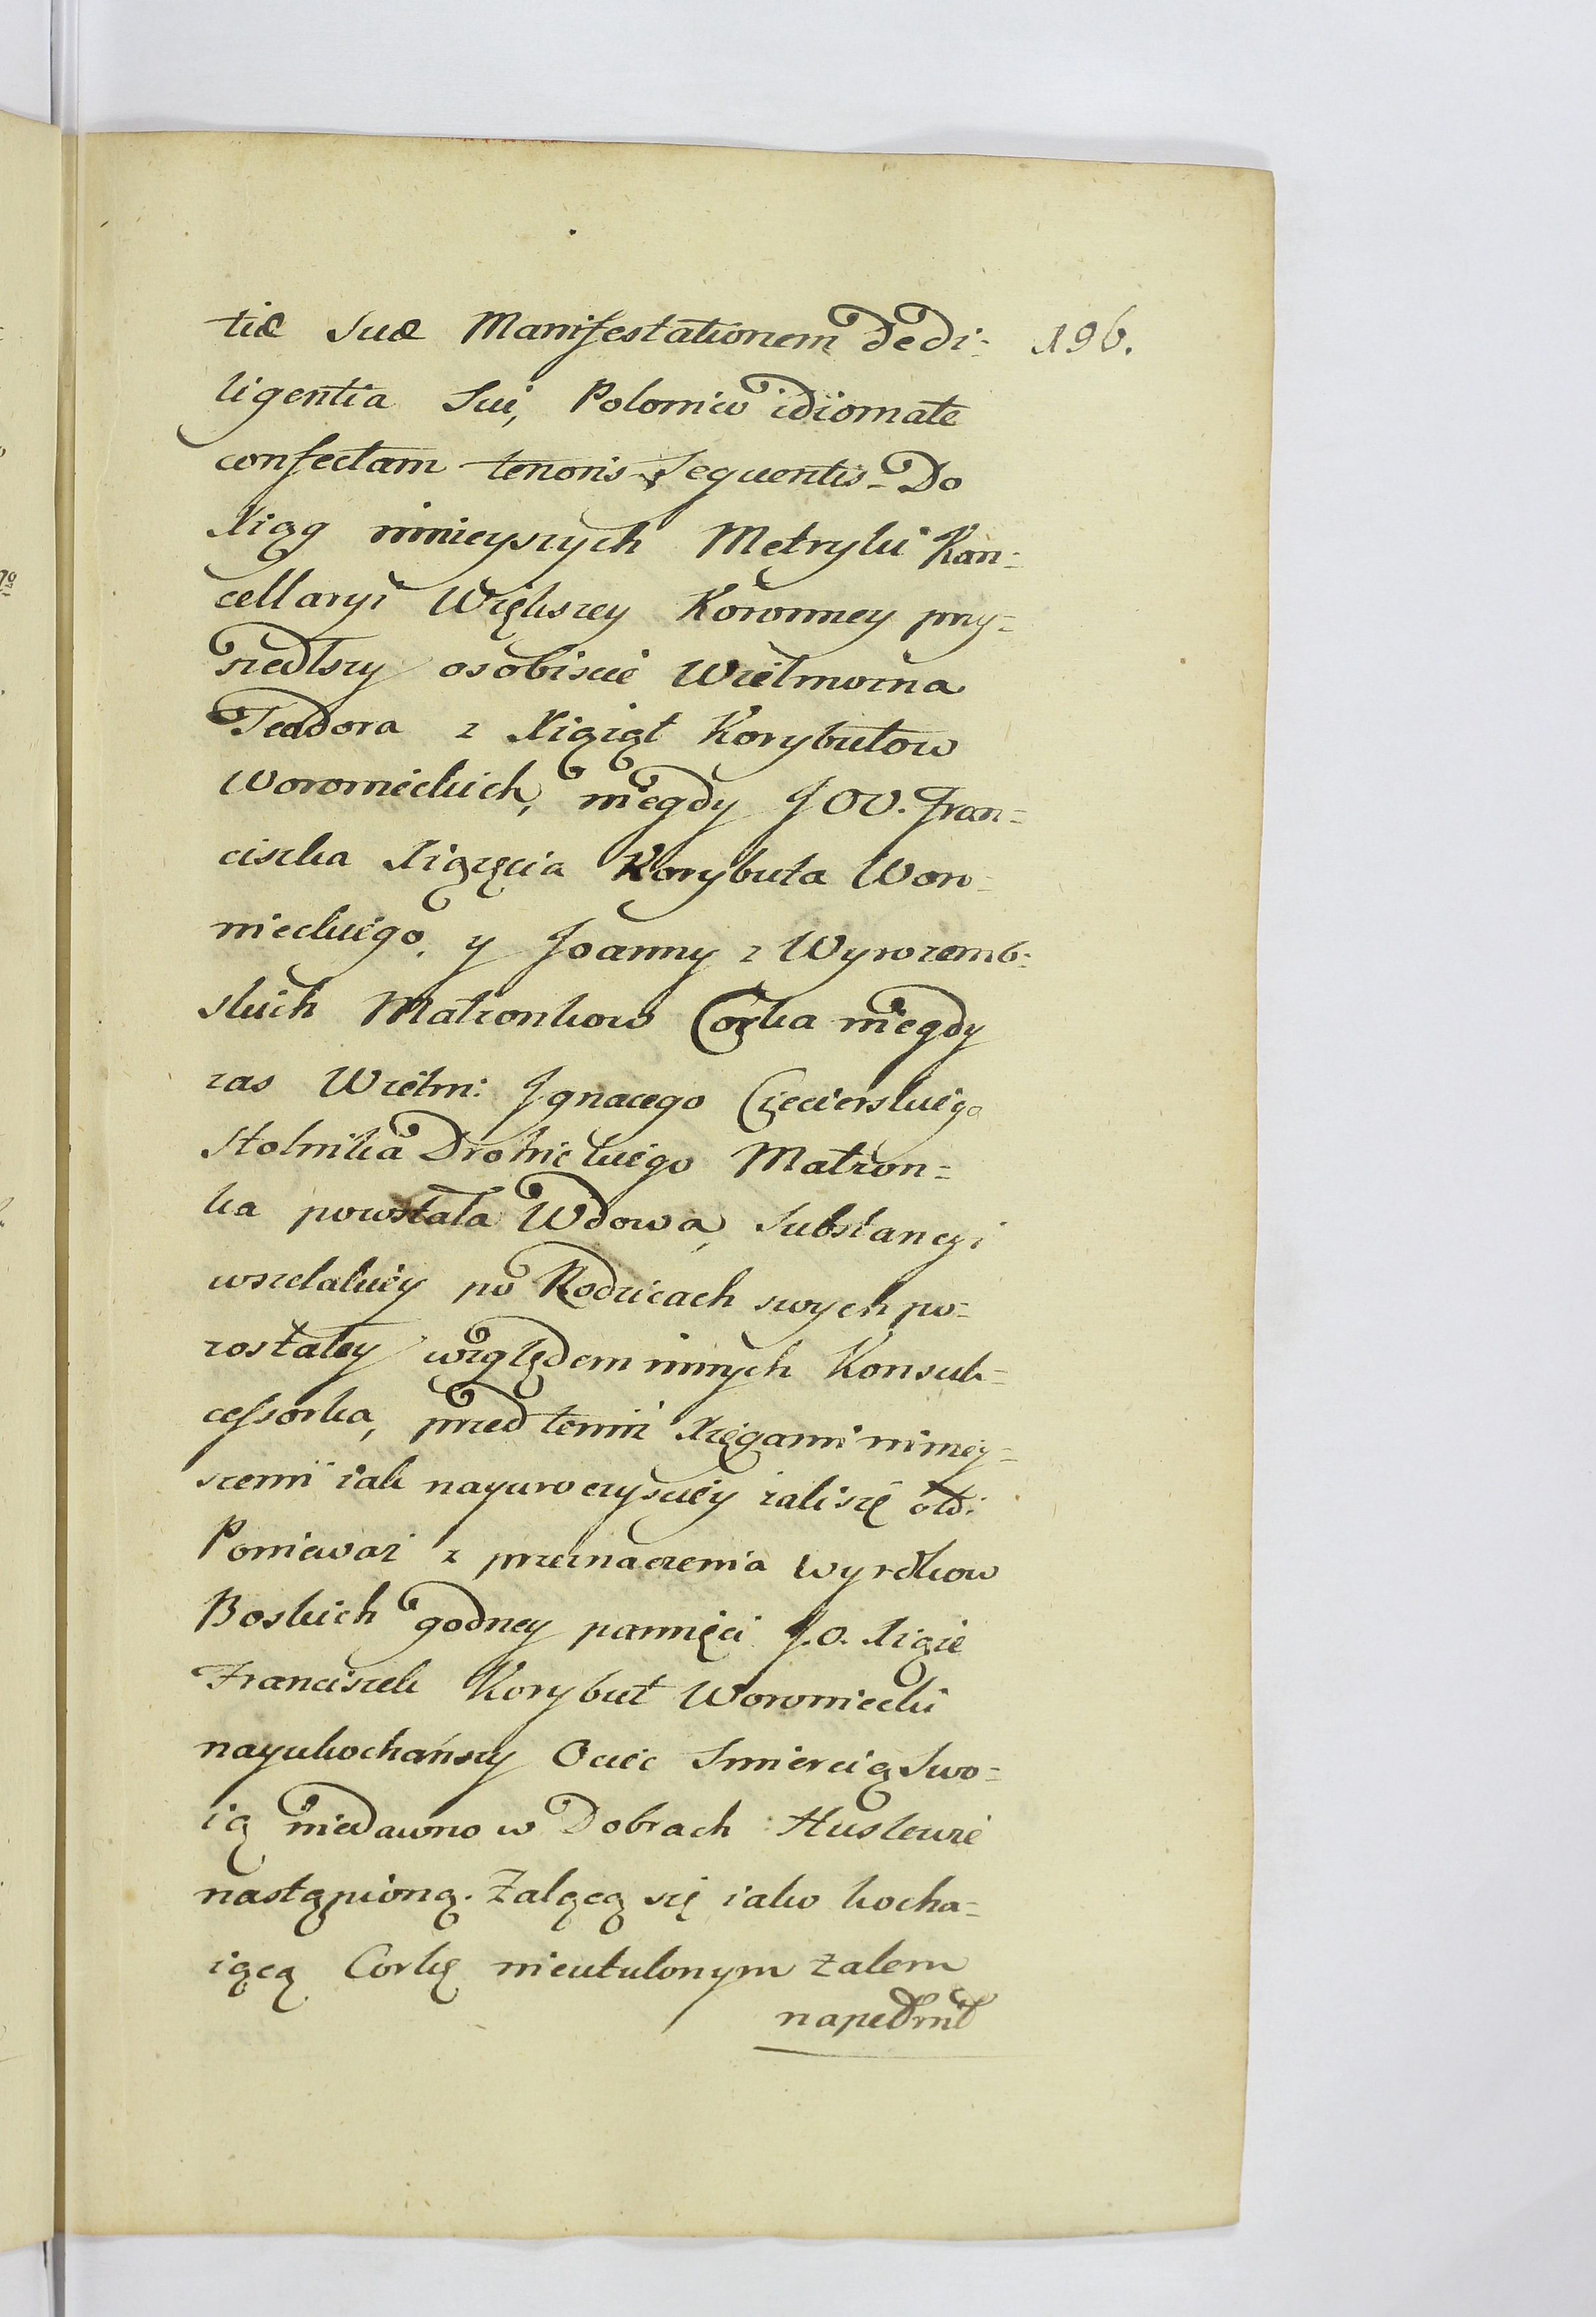 tiæ Suæ Manifestationem de di= 196.
ligentia Sui, Polonico idiomate
confectam tenoris Sequentis_ Do
Xiąg ninieyszych Metryki Kan=
cellaryi Większey Koronney przy=
szedłszy osobiscie Wielmożna
Teodora z Xiążąt Korybutow
Woronieckich, niegdy J OO. Fran=
ciszka Xiążęcia Korybuta Woro=
nieckiego, y Joanny z Wyrozemb=
skich Małżonkow Corka niegdy
zas Wielm: Ignacego Ciecierskiego
Stolnika Drohickiego Małżon=
ka powstała Wdowa, Substancyi
wszelakiey po Rodzicach swych po=
zostałey względem innych Konsuk=
cessorka, przed temi Xięgami niniey=
szemi iak nayuroczysciey żali się o to:
Ponieważ z przeznaczenia wyrokow
Boskich godney pamięci J. O. Xiąże
Franciszek Korybut Woroniecki
nayukochańszy Ociec Smiercią Swo=
ią niedawno w Dobrach Huslewie
nastąpioną. Żalącą się iako kocha=
iącą Corkę nieutulonym żalem
napełnił